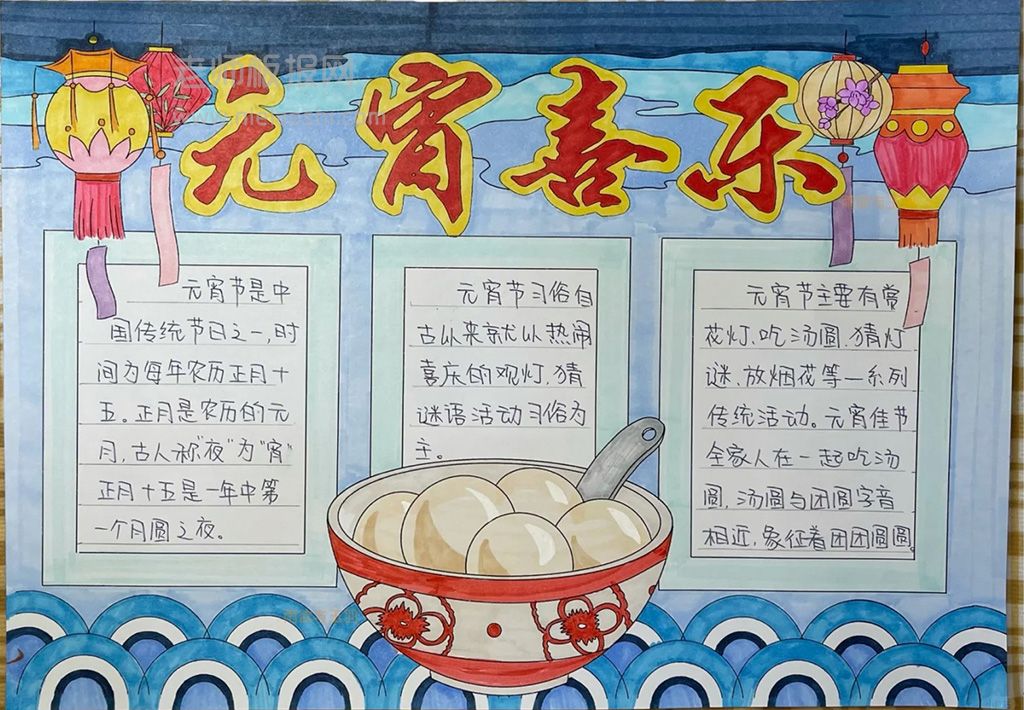 元宵喜乐
元宵节是中
国传统节日之一,时
间为每年农历正月十
五。正月是农历的元
月,古人称"夜"为"宵"
正月十五是一年中第
一个月圆之夜。
元宵节习俗自
古以来就以热闹
喜庆的观灯.猜
谜语活动习俗为
主。
元宵节主要有赏
花灯、吃汤圆.猜灯
谜、放烟花等一系列
传统活动。元宵佳节
全家人在一起吃汤
圆,汤圆与团圆字音
相近,象征着团团圆圆。
老师板报网